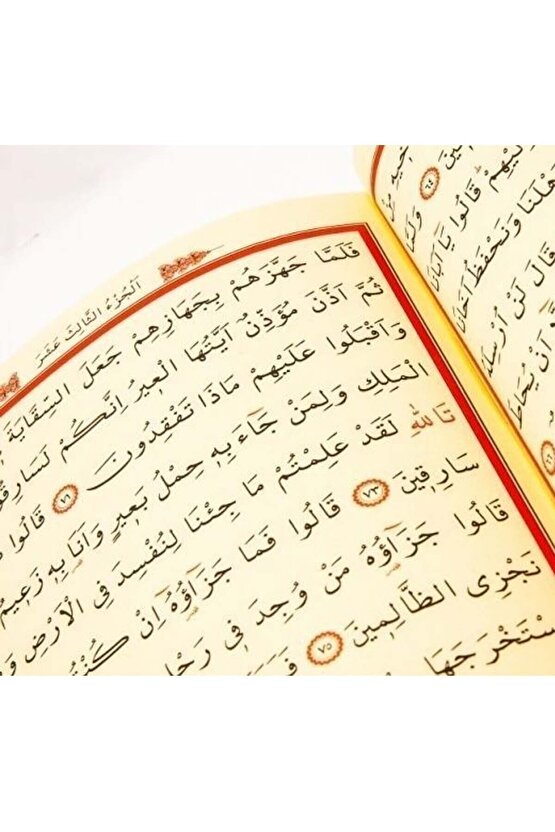 اَلْجُزْءُ الثَّالِثَ عَشَرَ
فَلَمَّا جَهَّزَهُمْ بِجَهَازِهِمْ جَعَلَ السِّقَايَةَ
ثُمَّ اَذَّنَ مُؤَذِّنٌ اَيَّتُهَا الْعٖيرُ اِنَّكُمْ لَسَارِقُ
وَاَقْبَلُوا عَلَيْهِمْ مَاذَا تَفْقِدُونَ ﴿٧١﴾ قَالُوا
الْمَلِكِ وَلِمَنْ جَٓاءَ بِهٖ حِمْلُ بَعٖيرٍ وَاَنَا بِهٖ زَعٖيمٌ
تَاللّٰهِ لَقَدْ عَلِمْتُمْ مَا جِئْنَا لِنُفْسِدَ فِى الْاَرْضِ وَ
سَارِقٖينَ ﴿٧٣﴾ قَالُوا فَمَا جَزَٓاؤُ۬هُٓ اِنْ كُنْتُ
قَالُوا جَزَٓاؤُ۬هُ مَنْ وُجِدَ فٖى رَحْلِ
نَجْزِى الظَّالِمٖينَ ﴿٧٥﴾
سْتَخْرَجَهَا
﴿٦٤﴾ وَلَمَّا
قَالُوا يَٓا اَبَانَا
هْلَنَا وَنَحْفَظُ اَخَانَا
قَالَ لَنْ اُرْسِلَهُ
اَنْ يُحَاطَ